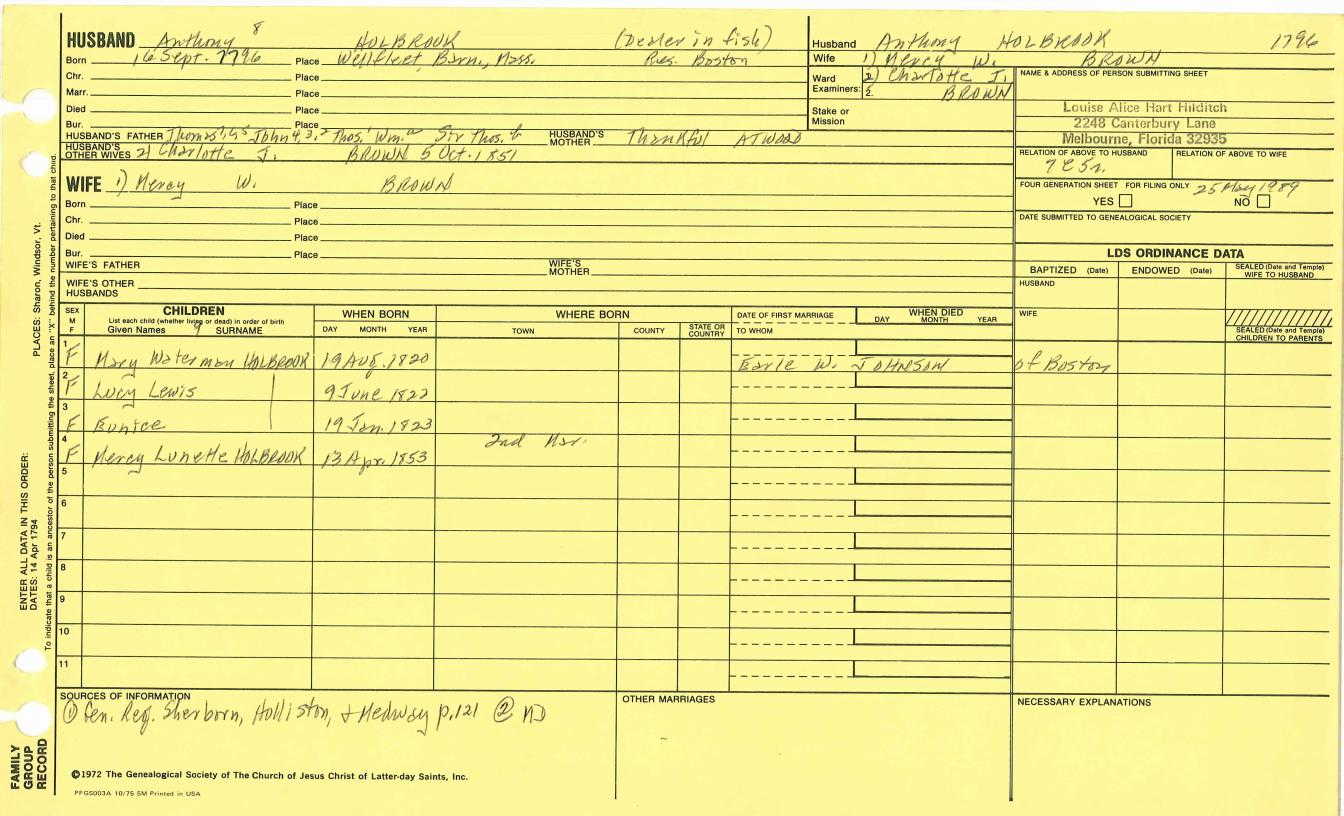 HUSBAND Anthony 8 HOLBROOK (Dealer in fish)
Born 16 Sept. 1796 Place Wellfleet, Barn., Mass. Res. Boston
Chr. Place
Marr. Place
Died Place
Bur. Place
HUSBAND'S FATHER Thomas John 4,3,2 Thos.1 Wm. Sir Thos. HUSBAND'S MOTHER Thankful ATWOOD
HUSBAND'S OTHER WIVES 2) Charlotte J. BROWN 5 Oct. 1851
WIFE 1) Mercy W. BROWN
Born Place
Chr. Place
Died Place
Bur. Place
WIFE'S FATHER WIFE'S MOTHER
WIFE'S OTHER HUSBANDS
Husband Anthony HOLBROOK 1796
Wife 1) Mercy W. BROWN
Ward Examiners: 2) Charlotte J.
2. BROWN
Stake or Mission
NAME & ADDRESS OF PERSON SUBMITTING SHEET
Louise Alice Hart Hilditch
2248 Canterbury Lane
Melbourne, Florida 32935
RELATION OF ABOVE TO HUSBAND RELATION OF ABOVE TO WIFE
7C5r.
FOUR GENERATION SHEET FOR FILING ONLY 25 May 1989
YES NO
DATE SUBMITTED TO GENEALOGICAL SOCIETY
LDS ORDINANCE DATA
BAPTIZED (Date) ENDOWED (Date) SEALED (Date and Temple) WIFE TO HUSBAND
HUSBAND
WIFE
SEALED (Date and Temple) CHILDREN TO PARENTS
SEX M F
CHILDREN
List each child (whether living or dead) in order of birth
Given Names 9 SURNAME
WHEN BORN
DAY MONTH YEAR
WHERE BORN
TOWN COUNTY STATE OR COUNTRY
DATE OF FIRST MARRIAGE
TO WHOM
WHEN DIED
DAY MONTH YEAR
1 F Mary Waterman HOLBROOK 19 Aug. 1820 Earle W. JOHNSON of Boston
2 F Lucy Lewis 9 June 1822
3 F Eunice 19 Jan. 1823
2nd Mar.
4 F Mercy Lunette HOLBROOK 13 Apr. 1853
5
6
7
8
9
10
11
SOURCES OF INFORMATION
① Gen. Reg. Sherborn, Holliston, & Medway p.121 ② MD
OTHER MARRIAGES
NECESSARY EXPLANATIONS
©1972 The Genealogical Society of The Church of Jesus Christ of Latter-day Saints, Inc.
PFGS003A 10/75 5M Printed in USA
FAMILY GROUP RECORD
ENTER ALL DATA IN THIS ORDER:
DATES: 14 Apr 1794
PLACES: Sharon, Windsor, Vt.
To indicate that a child is an ancestor of the person submitting the sheet, place an "X" behind the number pertaining to that child.